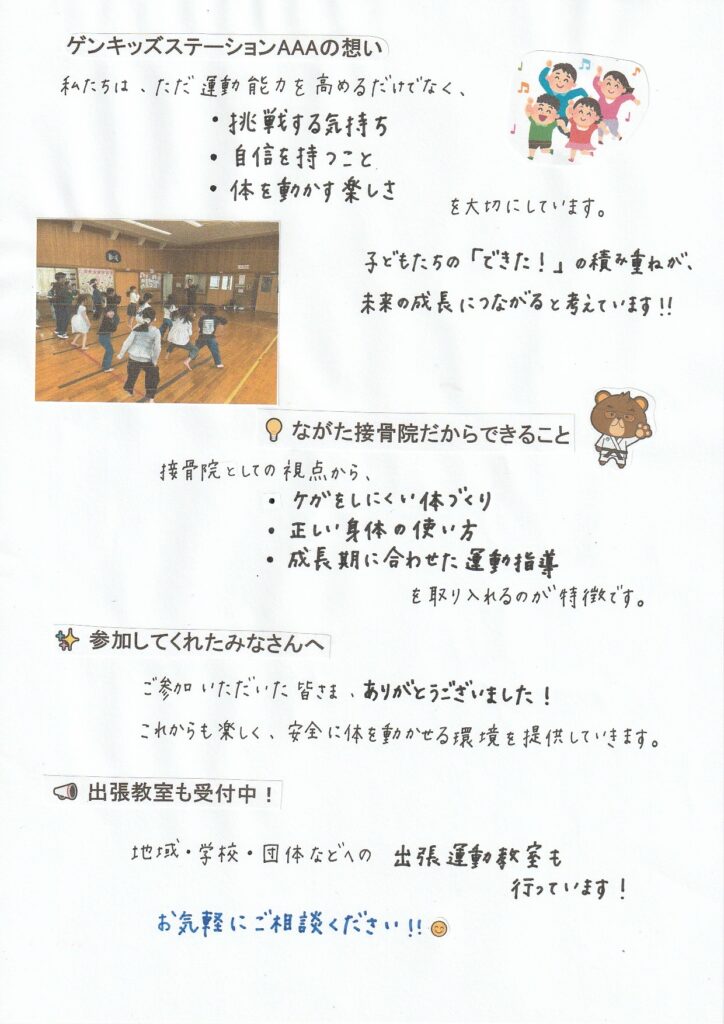 ゲンキッズステーションAAAの想い
私たちは、ただ運動能力を高めるだけでなく、
・挑戦する気持ち
・自信を持つこと
・体を動かす楽しさ
を大切にしています。
子どもたちの「できた!」の積み重ねが、
未来の成長につながると考えています!!
ながた接骨院だからできること
接骨院としての視点から、
・ケガをしにくい体づくり
・正しい身体の使い方
・成長期に合わせた運動指導
を取り入れるのが特徴です。
参加してくれたみなさんへ
ご参加いただいた皆さま、ありがとうございました!
これからも楽しく、安全に体を動かせる環境を提供していきます。
出張教室も受付中!
地域・学校・団体などへの 出張運動教室も
行っています!
お気軽にご相談ください!!